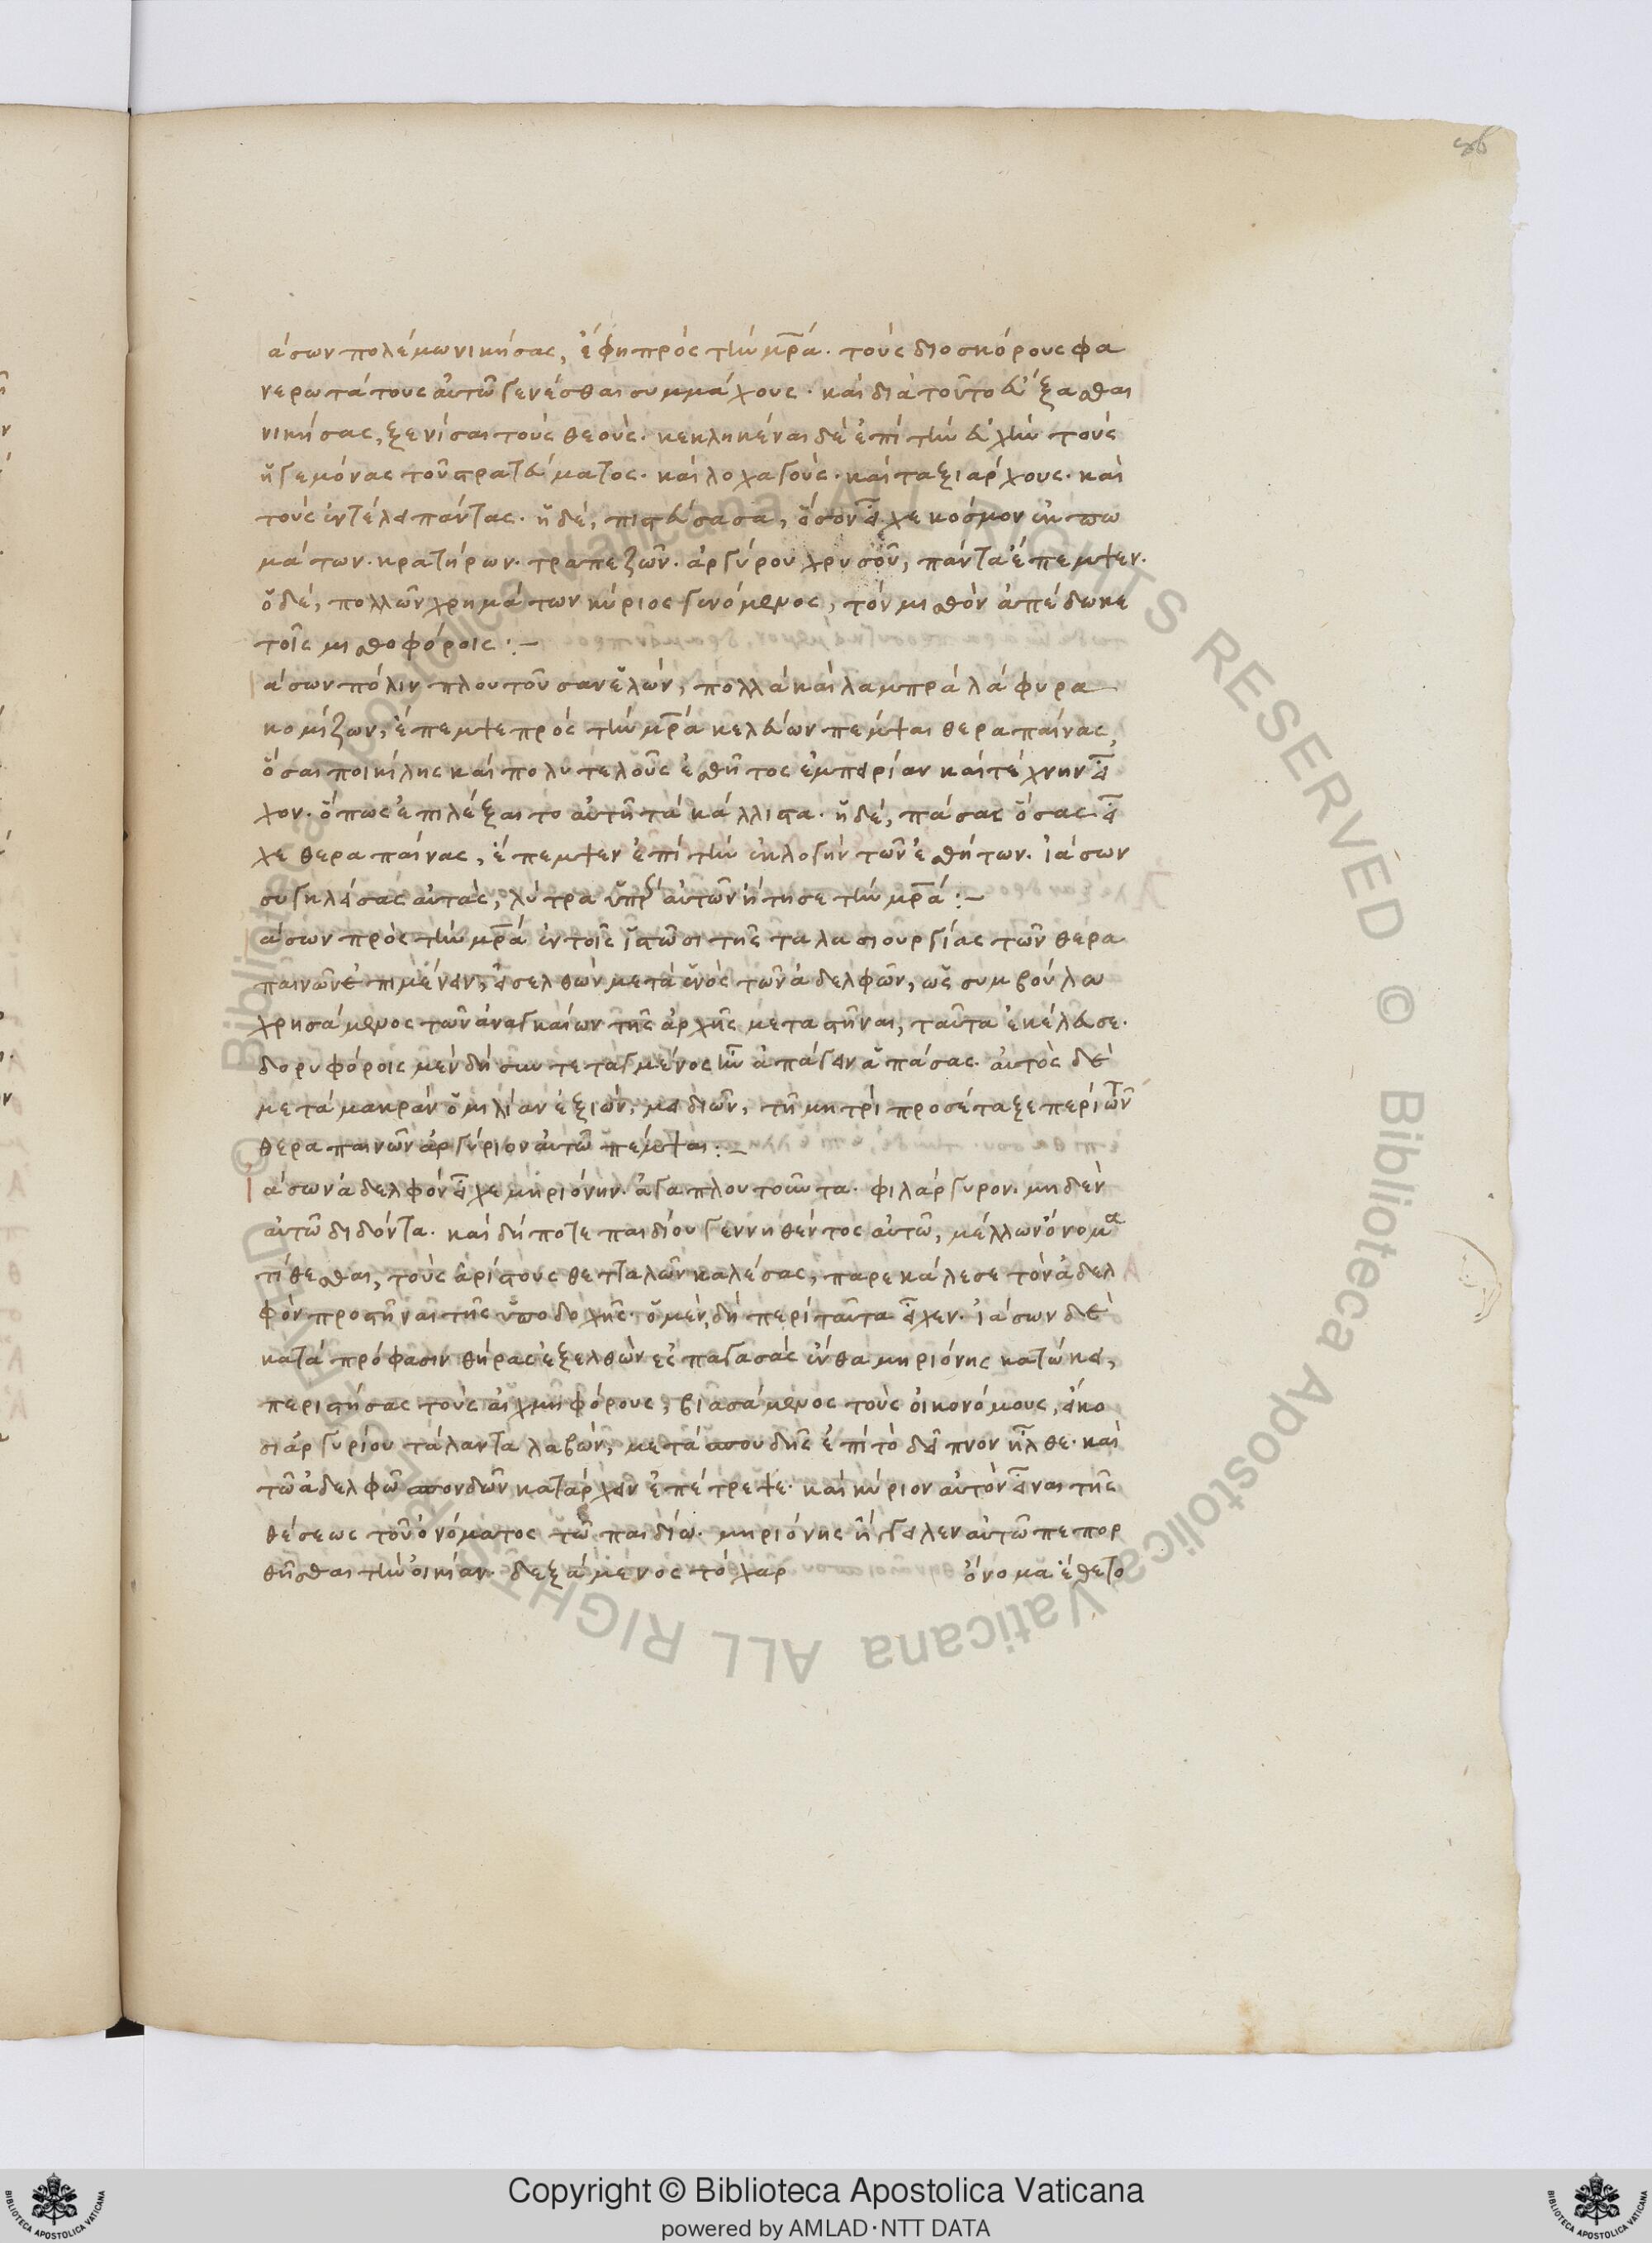 άσων πολέμω νικήσας, ἔφη πρὸς τὴν μρ̅ά. τοὺς διοσκόρους φα
νερωτάτους αὐτῶ γενέσθαι συμμάχους· καὶ διὰ τοῦτο εὔξασθαι
νικήσας, ξενίσαι τοὺς θεούς. κεκληκέναι δὲ ἐπὶ τὴν εὐχὴν τοὺς
ἡγεμόνας τοῦ στρατεύματος· καὶ λοχαγούς· καὶ ταξιάρχους· καὶ
τοὺς ἐν τέλει πάντας. ἡ δέ, πιστεύσασα, ὅσον εἶχε κόσμον ἐκπω
μάτων· κρατήρων· τραπεζῶν· ἀργύρου χρυσοῦ, πάντα ἔπεμψεν.
ὁ δέ, πολλῶν χρημάτων κύριος γενόμενος, τὸν μισθὸν ἀπέδωκε
τοῖς μισθοφόροις :–
άσων πόλιν πλουτοῦσαν ἑλών, πολλὰ καὶ λαμπρὰ λάφυρα
κομίζων, ἔπεμψε πρὸς τὴν μρ̅ά κελεύων πέμψαι θεραπαίνας,
ὅσαι ποικίλης καὶ πολυτελοῦς ἐσθῆτος ἐμπειρίαν καὶ τέχνην εἶ
χον. ὅπως ἐπιλέξαιτο αὐτῆ τὰ κάλλιστα. ἡ δέ, πάσας ὅσας εἶ
χε θεραπαίνας, ἔπεμψεν ἐπὶ τὴν ἐκλογὴν τῶν ἐσθήτων. ἰάσων
συγκλείσας αὐτάς, λύτρα ὑπὲρ αὐτῶν ἤτησε τὴν μρ̅ά :–
άσων πρὸς τὴν μρ̅ά ἐν τοῖς ἱστῶσι τῆς ταλασιουργίας τῶν θερα
παινῶν ἐπιμένειν, εἰσελθὼν μετὰ ἑνὸς τῶν ἀδελφῶν, ὡς συμβούλω
χρησάμενος τῶν ἀναγκαίων τῆς ἀρχῆς μεταστῆναι, ταῦτα ἐκέλευσε.
δορυφόροις μὲν δὴ συντεταγμένος ἦν ἀπάγειν ἁπάσας. αὐτὸς δὲ
μετὰ μακρὰν ὁμιλίαν ἐξιών, μειδιῶν, τῆ μητρὶ προσέταξε περὶ τῶν
θεραπαινῶν ἀργύριον αὐτῶ πέμψαι :–
Ἰάσων ἀδελφὸν εἶχε μηριόνην· ἄγα πλουτοῦντα· φιλάργυρον· μηδὲν
αὐτῶ διδόντα. καὶ δή ποτε παιδίου γεννηθέντος αὐτῶ, μέλλων ὄνομα
τίθεσθαι, τοὺς ἀρίστους θετταλῶν καλέσας, παρεκάλεσε τὸν ἀδελ
φὸν προστῆναι τῆς ὑποδοχῆς. ὁ μὲν δὴ περὶ ταῦτα εἶχεν. ἰάσων δὲ
κατὰ πρόφασιν θήρας ἐξελθὼν ἐς παγασάς ἔνθα μηριόνης κατώκει,
περιστήσας τοὺς αἰχμηφόρους, βιασάμενος τοὺς οἰκονόμους, εἴκο
σι ἀργυρίου τάλαντα λαβών, μετὰ σπουδῆς ἐπὶ τὸ δεῖπνον ἦλθε. καὶ
τῶ ἀδελφῶ σπονδῶν κατάρχειν ἐπέτρεψε· καὶ κύριον αὐτὸν εἶναι τῆς
θέσεως τοῦ ὀνόματος τῶ παιδίω. μηριόνης ἤγγειλεν αὐτῶ πεπορ
θῆσθαι τὴν οἰκίαν. δεξάμενος τὸ χαρ ὄνομα ἔθετο
Copyright © Biblioteca Apostolica Vaticana
powered by AMLAD·NTT DATA